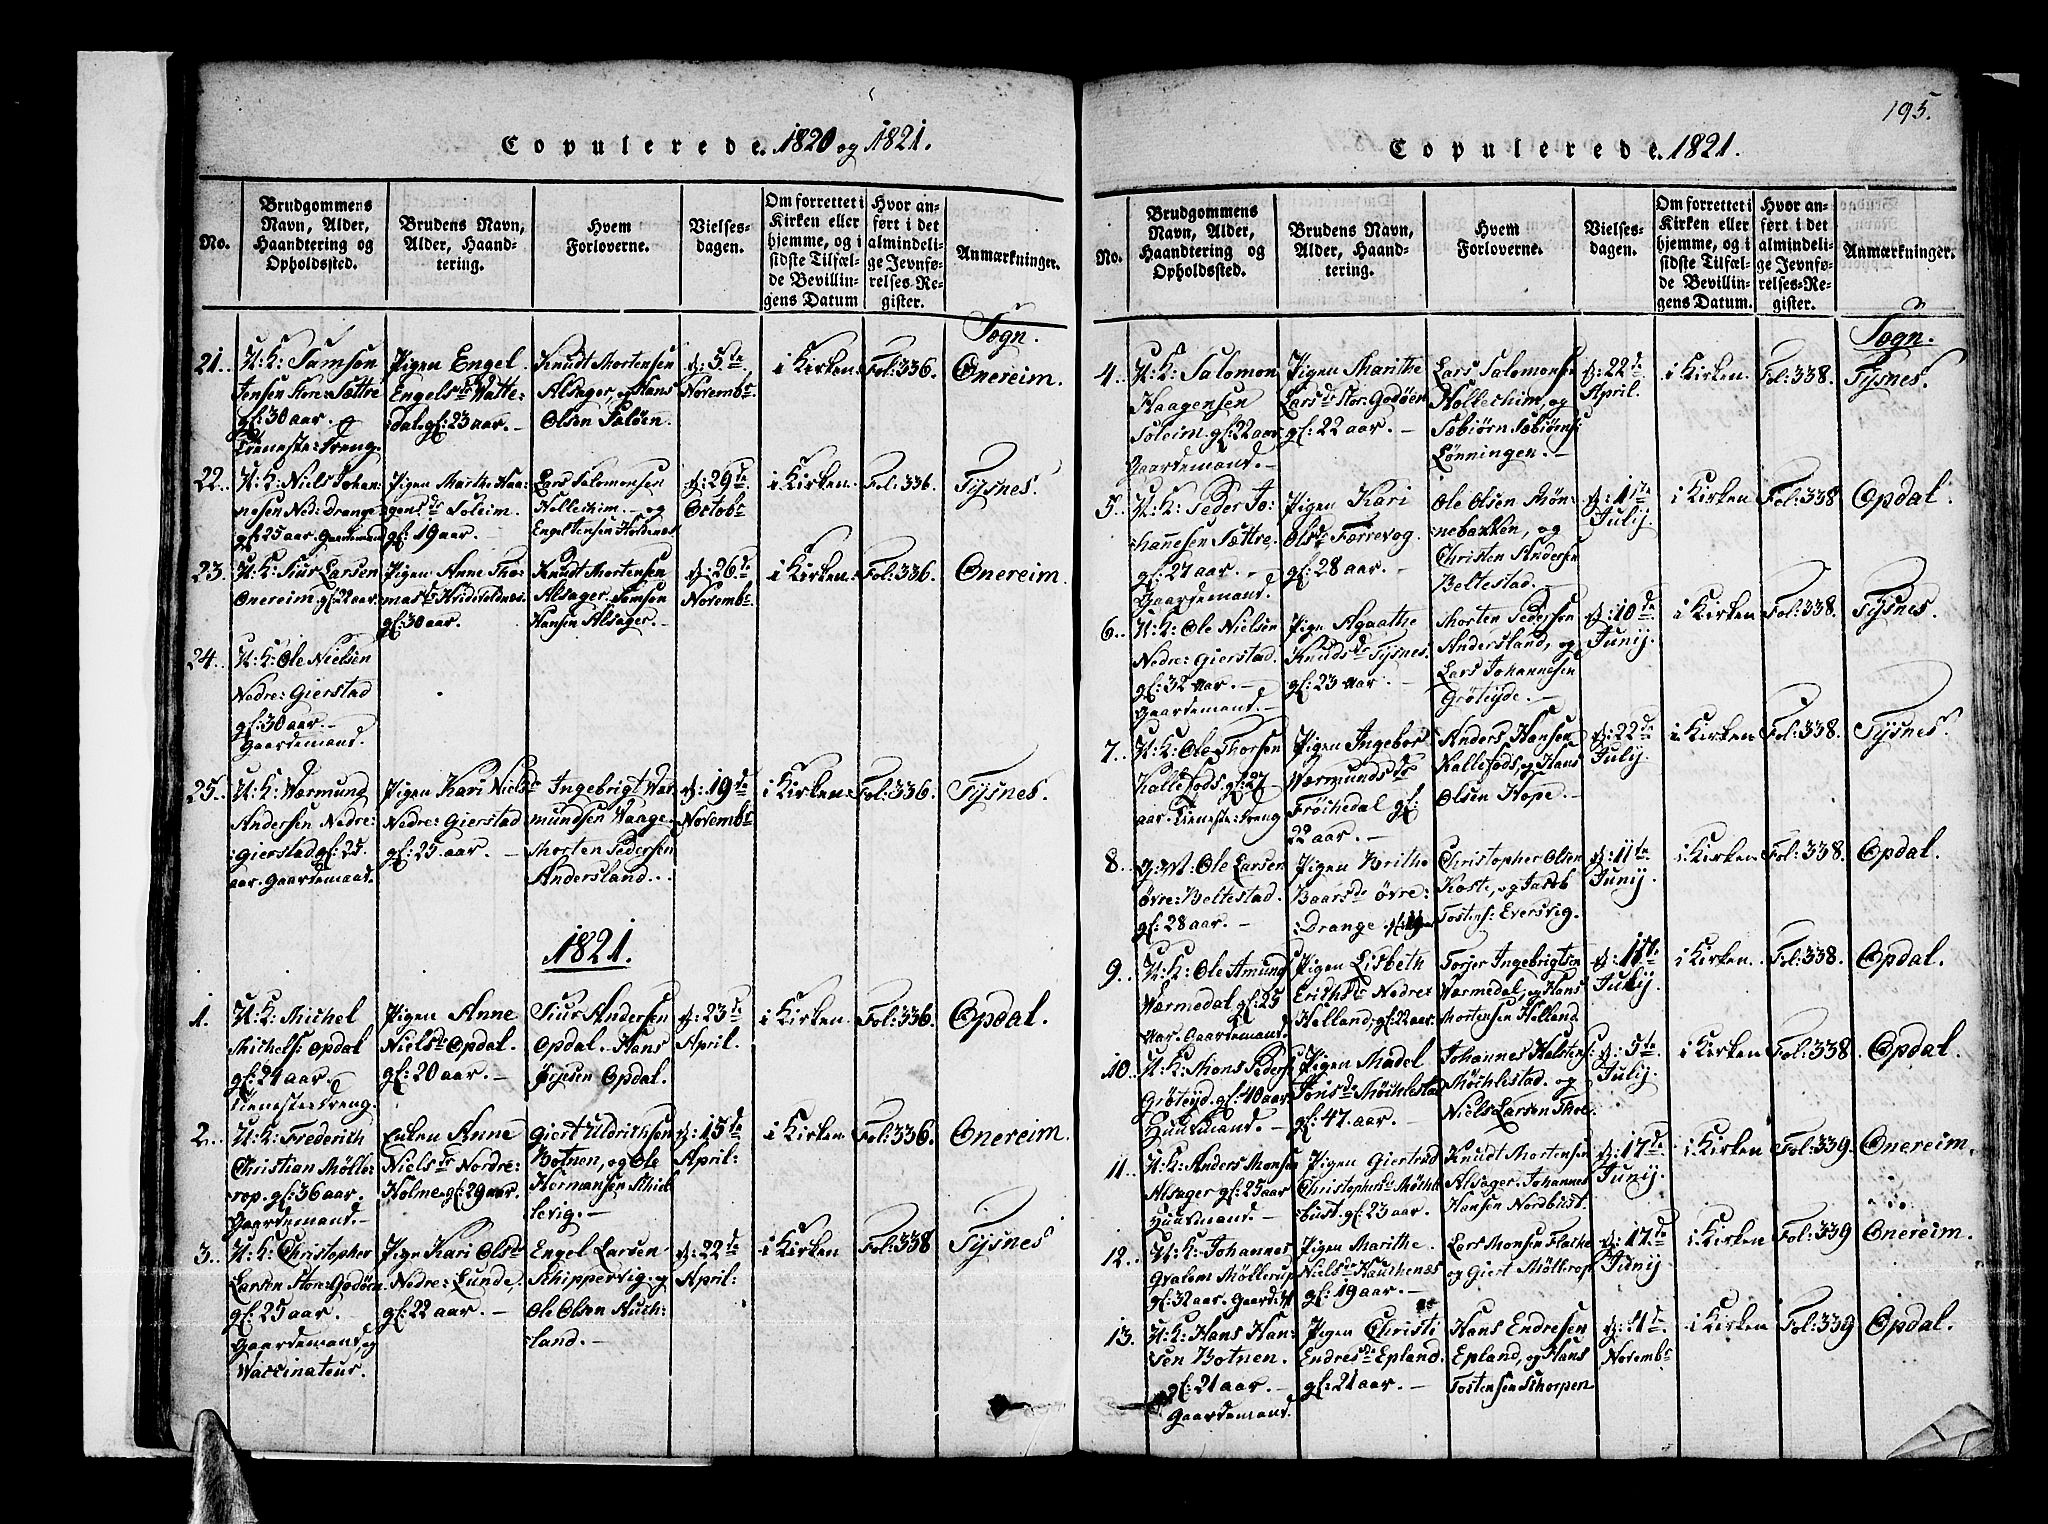 Copulerede. 1820 og 1821.
No.
Brudgommens
Navn, Alder,
Haandtering og
Opholdssted.
Brudens Navn,
Alder, Haand-
tering.
Hvem
Forloverne.
Vielses-
dagen.
Om forrettet i
Kirken eller
hjemme, og i
sidste Tilfæl-
de Bevillin-
gens Datum
Hvor an-
ført i det
almindeli-
ge Jevnfø-
relses-Re-
gister.
Anmærkninger.
Sogn.
21.
U:K: Samson
Jensen Store: Sættre
gl: 30 aar. og
Tieneste: Dreng.
Pigen Engel
Engels dr Watte-
dal gl: 23 aar. —
Knudt Mortensen
Alsager, og Hans
Olsen Saløen.
d: 5te
Novembr.
i Kirken.
Fol: 336.
Onereim.
22.
U:K: Niels Johan-
nesen Ned: Drange
gl: 25 aar. Gaardemand
Pigen Marthe Haa-
gens dr Soleim.
gl: 19 aar. —
Lars Salomonsen
Holleshim. — og
d: 29de
Octobr
i Kirken.
Fol: 336.
Tysnes.
23.
U:K: Siur Larsen
Onereim. gl: 22 aar.
Pigen Anne Tho-
mas dr
gl: 30 aar.
Knudt Mortensen
Alsager. Samson
Hansen Alsager. —
d: 26de
Novembr.
i Kirken.
Fol: 336.
Onereim.
24.
U:K: Ole Nielsen
Nedre: Gierstad
gl: 30 aar. —
Gaardemand.
25.
U:K: Wærmung
Andersen Nedre:
:Gierstad gl: 25
aar. Gaardemand.
Pigen Kari Niels dr
Nedre: Gierstad
gl: 25 aar. —
Ingebrigt Wær-
mundsen Waage.
Morten Pedersen
Andersland..
d: 19de
Novembr
i Kirken.
Fol: 336.
Tysnes.
1821.
1.
U:K: Michel
Michels: Opdal
gl: 24 aar.
Tieneste: Dreng.
Pigen Anne
Niels dr Opdal.
gl: 20 aar. —
Siur Andersen
Opdal. Hans
Ørjesen Opdal.
d: 23de
April.
i Kirken.
Fol: 336.
Opdal.
2.
U:K: Frederich
Christian Mølle-
rop. gl: 36 aar.
Gaardemand. —
Enken Anne
Niels dr Nordre:
Holme. gl: 29 aar.
Giert Uldrichsen
Botnen, og Ole
Hermansen Skie-
levig. —
d: 15de
April:
i Kirken
Fol: 336.
Onereim.
3.
U:K: Christopher
Larsen Store: Godøen
gl: 25 aar.
Gaardemand, og
Vaccinateur.
Pigen Kari Ols dr
Nedre: Lunde,
gl: 22 aar. —
Engel Larsen
Schippervig. og
Ole Olsen Huch-
land. —
d: 22de
April:
i Kirken
Fol: 338
Tysnes
195.
Copulerede. 1821.
No.
Brudgommens
Navn, Alder,
Haandtering og
Opholdssted.
Brudens Navn,
Alder, Haand-
tering.
Hvem
Forloverne.
Vielses-
dagen.
Om forrettet i
Kirken eller
hjemme, og i
sidste Tilfæl-
de Bevillin-
gens Datum.
Hvor an-
ført i det
almindeli-
ge Jevnfø-
relses-Re-
gister.
Anmærkninger.
Sogn.
4.
U:K: Salomon
Haagensen
Soleim. gl: 22 aar
Gaardemand. —
Pigen Marithe
Lars dr Stor: Godøen
gl: 22 aar. —
Lars Salomonsen
Holleshim, og
Sæbiørn Sæbiørns:
Lønningen. —
d: 22de
April.
i Kirken.
Fol: 338.
Tysnes.
5.
U:K: Peder Jo-
hannesen Sættre,
gl: 27 aar. —
Gaardemand.
Pigen Kari
Ols dr Færrevog.
gl: 28 aar. —
Ole Olsen Røn-
nebakken, og
Christen Andersen
Beltestad. —
d: 1ste
Julij.
i Kirken
Fol: 338
Opdal.
6.
U:K: Ole Nielsen
Nedre: Gierstad.
gl: 32 aar. —
Gaardemand. —
Pigen Agaathe
Knuds dr Tysnes.
gl: 23 aar. —
Morten Pedersen
Andersland, og
Lars Johannesen
Grøteyde. —
d: 10de
Junij.
i Kirken
Fol: 338.
Tysnes.
7.
U:K: Ole Thorsen
Kallefods. gl: 27
aar. Tieneste: Dreng
Pigen Ingebor
Wærmunds dr
Frøichedal gl:
22 aar. —
Anders Hansen
Kallefods, og Hans
Olsen Hope. —
d: 22de
Julij.
i Kirken
Fol: 338.
Tysnes.
8.
Ole Larsen
øvre: Beltestad.
gl: 28 aar. —
Pigen Brithe
Baars dr øvre:
:Drange.
Christopher Olsen
Koste, og Jacob
Tostens: Eversvig.
d: 11te
Junij.
i Kirken.
Fol: 338.
Opdal.
9.
U:K: Ole Amund:
Wærmedal gl: 25
aar. Gaardemand.
Pigen Lisbeth
Erichs dr Nedre:
Helland, gl: 22 aar.
Torjer Ingebrigtsen
Wærmedal, og Hans
Mortensen Helland
Julij.
i Kirken.
Fol: 338.
Opdal.
10.
U:K: Mons Peders:
Grøteyd. gl: 40 aar.
Huusmand. —
Pigen Madel
Jons dr Møchlestad
gl: 47 aar. —
Johannes Halstens:
Møchlestad. og
Niels Larsen
d: 5te
Julij.
i Kirken
Fol: 338.
Opdal.
11.
U:K: Anders Monsen
Alsager gl: 25 aar
Huusmand. —
Pigen Giertrud
Christophers dr Møchle-
bust. gl: 23 aar.
Knudt Mortensen
Alsager. Johannes
Hansen Nordbust.
d: 17de
Junij.
i Kirken
Fol: 339.
Onereim.
12.
U:K: Johannes
Gvalem Møllerup
gl: 32 aar. Gaard:M
Pigen Marithe
Niels dr Hauchenæs
gl: 19 aar. —
Lars Monsen Flathe
og Giert Møllrop
d: 17de
Junij.
i Kirken
Fol: 339
Onereim.
13.
U:K: Hans Han-
sen Botnen.
gl: 21 aar. —
Gaardemand.
Pigen Christi
Endres dr Epland.
gl: 21 aar. —
Hans Endresen
Epland, og Hans
Tostensen Skorpen
Novembr
i Kirken
Fol: 339
Opdal.